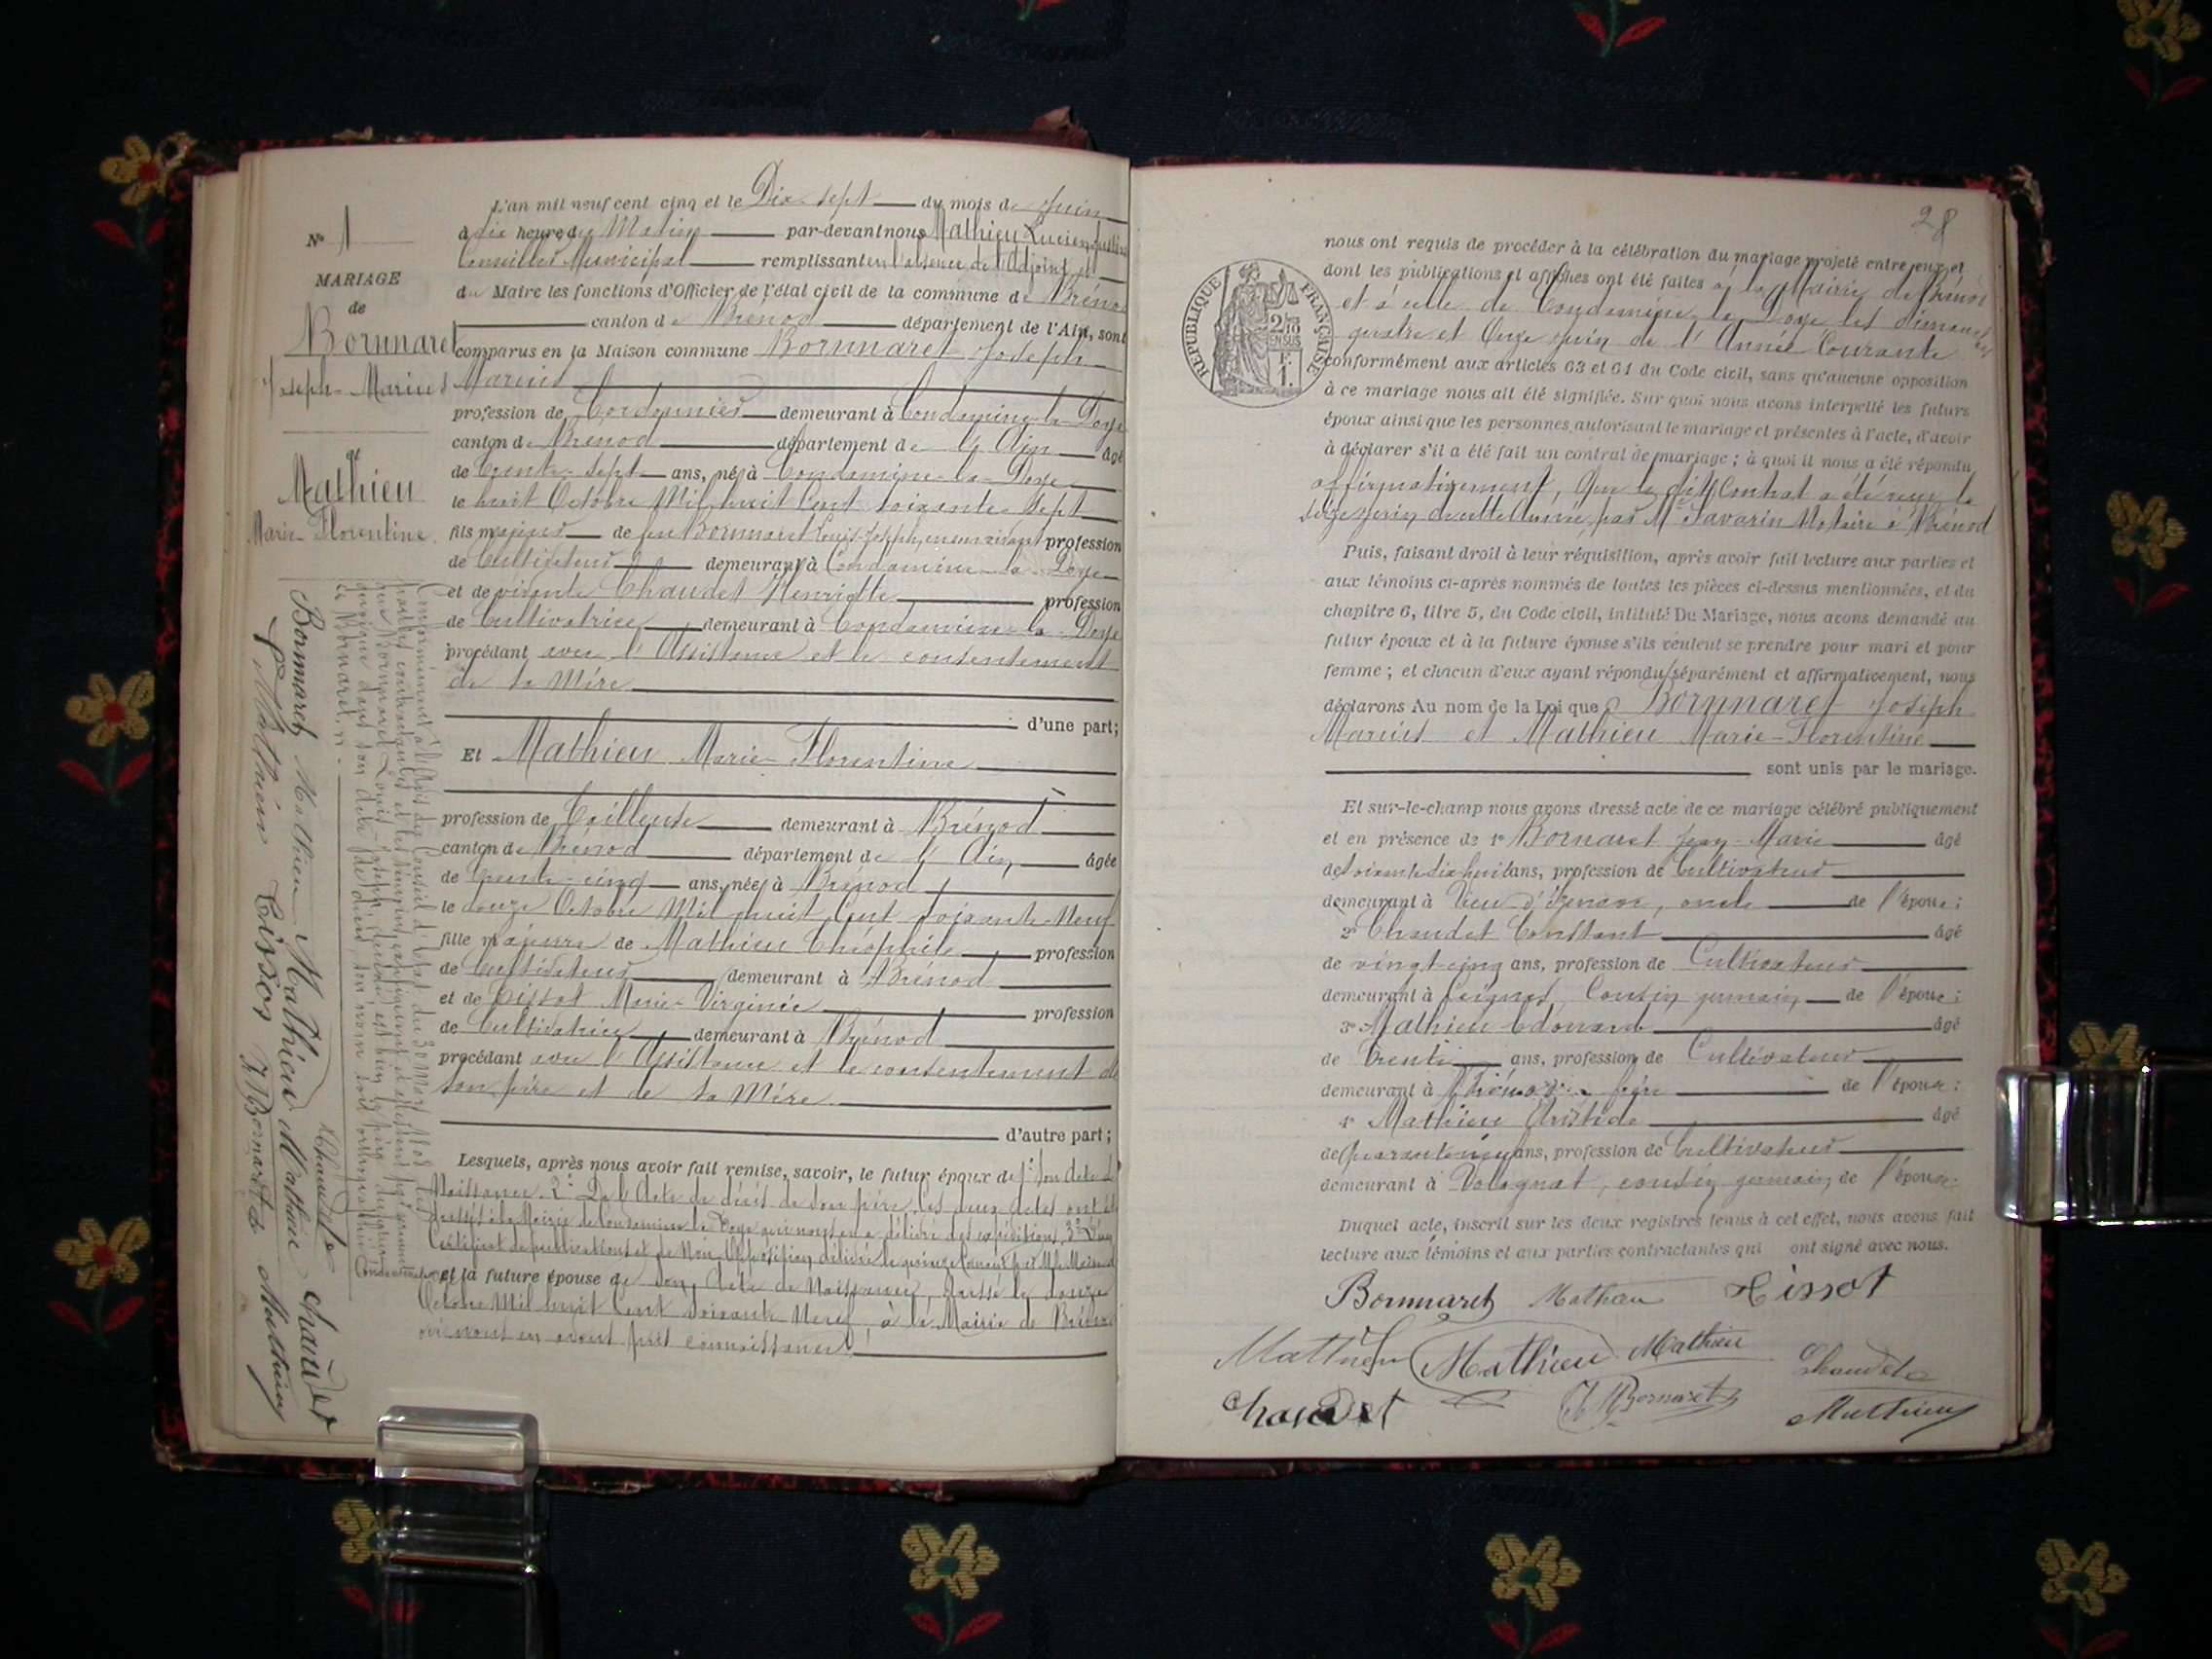 N° 1
MARIAGE
de
Bornnaret
Joseph-Marius
et
Mathieu
Marie-Florentine
L'an mil neuf cent cinq et le Dix sept du mois de Juin
à dix heures du Matin par-devant nous Mathieu Lucien
Conseiller Municipal remplissant en l'absence de l'Adjoint et
du Maire les fonctions d'Officier de l'état civil de la commune de Brénod
canton de Brénod département de l'Ain, sont
comparus en la Maison commune Bornnaret Joseph
Marius
profession de Cordonnier demeurant à Condamine-la-Doye
canton de Brénod département de l'Ain âgé
de trente-sept ans, né à Condamine-la-Doye
le huit Octobre Mil huit Cent soixante sept
fils majeur de feu Bornnaret Louis-Joseph, en son vivant profession
de Cultivateur demeurant à Condamine-la-Doye
et de vivante Chaudet Henriette profession
de Cultivatrice demeurant à Condamine-la-Doye
procédant avec l'Assistance et le consentement
de sa Mère
d'une part;
Et Mathieu Marie-Florentine
profession de Tailleuse demeurant à Brénod
canton de Brénod département de l'Ain âgée
de trente-cinq ans, née à Brénod
le douze Octobre Mil huit Cent soixante-Neuf
fille majeure de Mathieu Théophile profession
de Cultivateur demeurant à Brénod
et de Tissot Marie-Virginie profession
de Cultivatrice demeurant à Brénod
procédant avec l'Assistance et le consentement de
son père et de sa Mère
d'autre part;
Lesquels, après nous avoir fait remise, savoir, le futur époux de 1° son acte de
Naissance. 2° De l'Acte de décès de son père, les deux actes ont été
dressés à la Mairie de Condamine la Doye qui nous en a délivré des expéditions, 3° D'un
Certificat de publications et de Non Opposition délivré le quinze Courant par M. le Maire de
Condamine
et la future épouse de son Acte de Naissance, dressé le douze
Octobre Mil huit Cent soixante Neuf, à la Mairie de Brénod
où nous en avons pris connaissance
Conformément à l'Avis du Conseil d'Etat du 30 Mars 1808 les
parties contractantes et les témoins
que Bornnaret Louis-Joseph
quoique dans son acte de décès son nom soit orthographié
"Bornaret".
Bornnaret Mathieu Mathieu Mathieu chaudet
Mathieu Tissot J M Bornaret Mathieu
Chaudet
28
RÉPUBLIQUE FRANÇAISE
2/10
EN SUS
F.
1.
nous ont requis de procéder à la célébration du mariage projeté entre eux et
dont les publications et affiches ont été faites à la Mairie de Brénod
et à celle de Condamine la Doye les dimanches
quatre et Onze Juin de l'Année Courante
conformément aux articles 63 et 64 du Code civil, sans qu'aucune opposition
à ce mariage nous ait été signifiée. Sur quoi nous avons interpellé les futurs
époux ainsi que les personnes autorisant le mariage et présentes à l'acte, d'avoir
à déclarer s'il a été fait un contrat de mariage; à quoi il nous a été répondu
affirmativement, Que le dit Contrat a été reçu le
seize Juin de cette année, par Me Savarin Notaire à Brénod
Puis, faisant droit à leur réquisition, après avoir fait lecture aux parties et
aux témoins ci-après nommés de toutes les pièces ci-dessus mentionnées, et du
chapitre 6, titre 5, du Code civil, intitulé Du Mariage, nous avons demandé au
futur époux et à la future épouse s'ils veulent se prendre pour mari et pour
femme; et chacun d'eux ayant répondu séparément et affirmativement, nous
déclarons Au nom de la Loi que Bornnaret Joseph
Marius et Mathieu Marie-Florentine
sont unis par le mariage.
Et sur-le-champ nous avons dressé acte de ce mariage célébré publiquement
et en présence de 1° Bornaret Jean-Marie âgé
de soixante dix huit ans, profession de Cultivateur
demeurant à Vieu d'Izenave, oncle de l'époux;
2° Chaudet Constant âgé
de vingt-cinq ans, profession de Cultivateur
demeurant à Leignes, Cousin germain de l'époux;
3° Mathieu Edouard âgé
de Trente ans, profession de Cultivateur
demeurant à Brénod, frère de l'épouse;
4° Mathieu Aristide âgé
de quarante cinq ans, profession de Cultivateur
demeurant à Volognat, cousin germain de l'épouse
Duquel acte, inscrit sur les deux registres tenus à cet effet, nous avons fait
lecture aux témoins et aux parties contractantes qui ont signé avec nous.
Bornnaret Mathieu Tissot
Mathieu Mathieu Mathieu Chaudet
chaudet J M Bornaret Mathieu